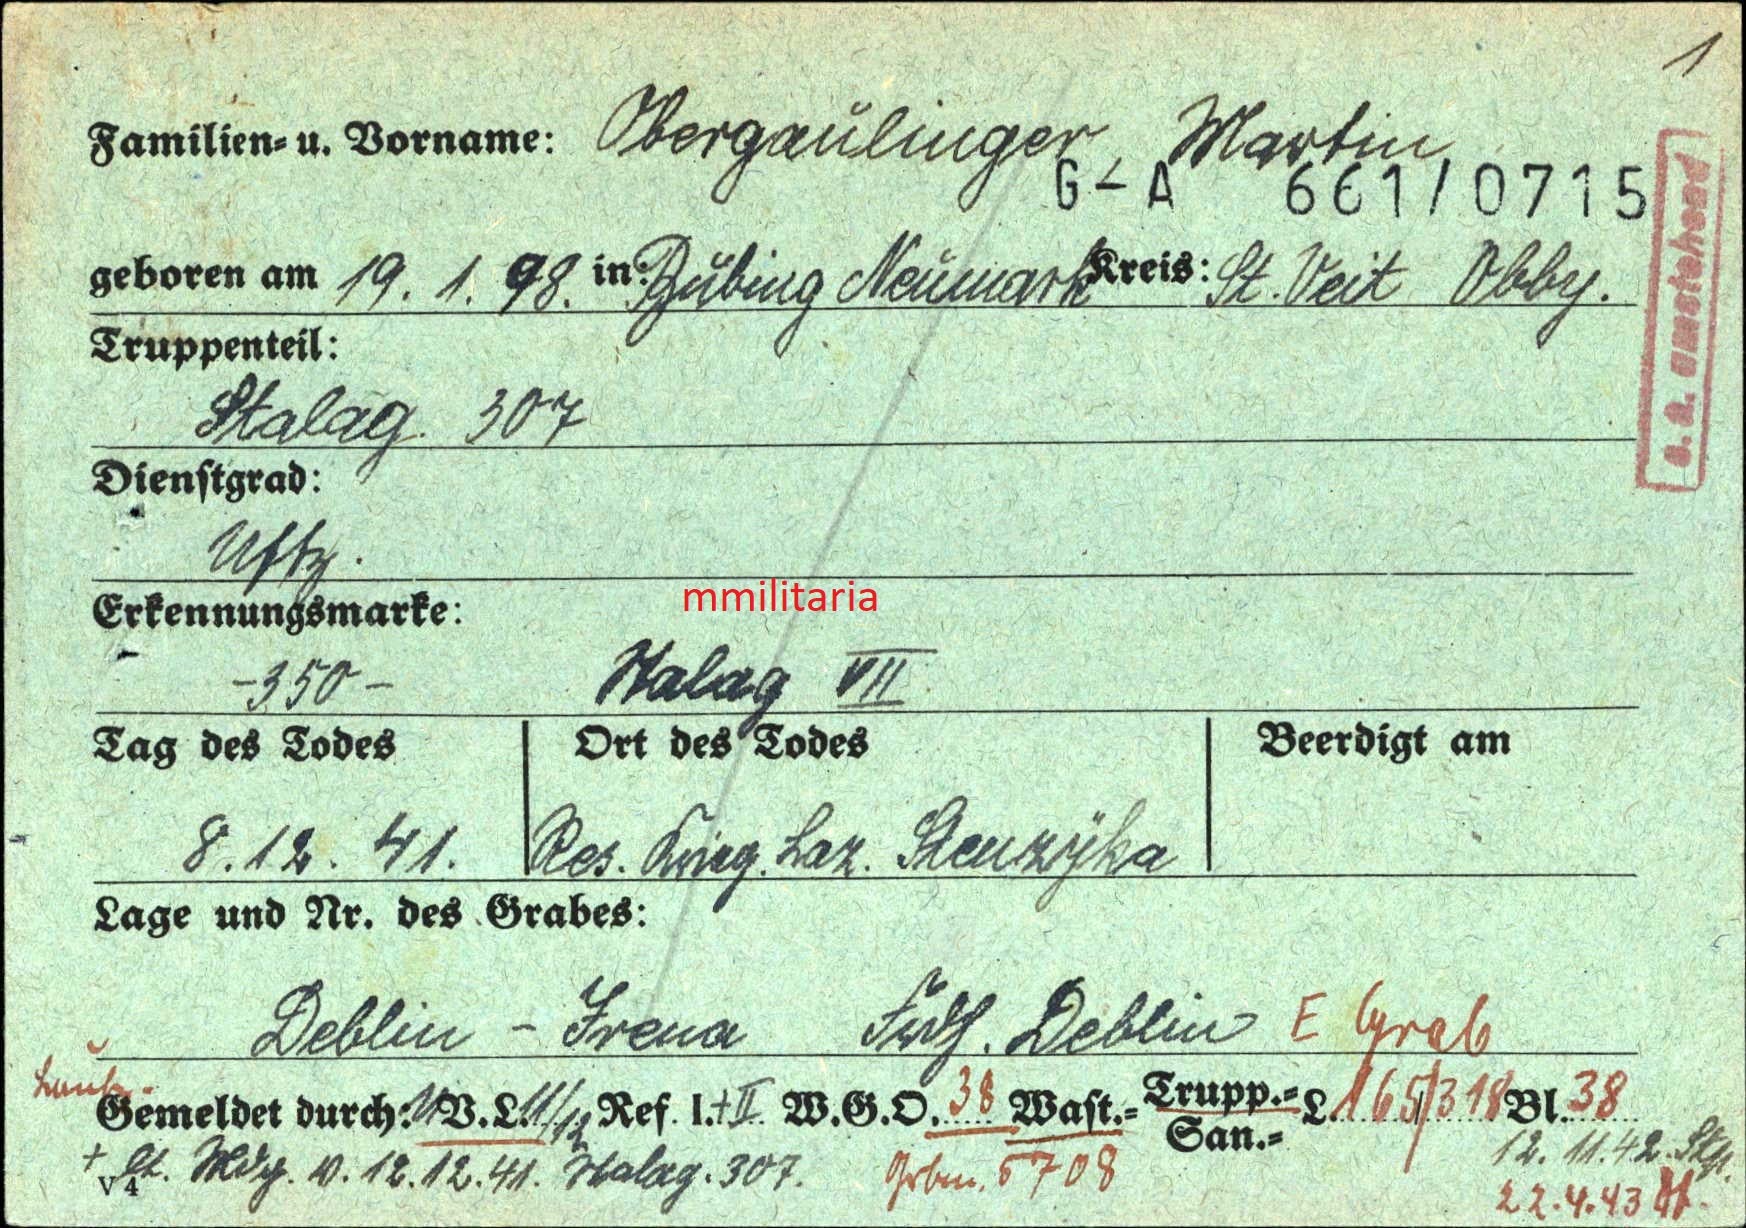 1
Familien- u. Vorname: Obergaulinger Martin
G-A 661/0715
geboren am 19. 1. 98. in: Bübing Neumark Kreis: St. Veit Obby.
s. a. umstehend
Truppenteil:
Stalag. 307
Dienstgrad:
Uffz.
Erkennungsmarke:
mmilitaria
-350- Stalag VII
Tag des Todes Ort des Todes Beerdigt am
8. 12. 41. Res. Krieg. Laz. Stenzyka
Lage und Nr. des Grabes:
Deblin - Irena Frdhf. Deblin E Grab
Gemeldet durch: V.L. 11/12 Ref. I.+II W.G.O. 38 Wast.- Trupp.- L. 165/318 Bl. 38
San.-
+ St. Mdg. v. 12.12.41. Stalag. 307. Grbm. 5708 12. 11. 42.
V 4 22.4.43